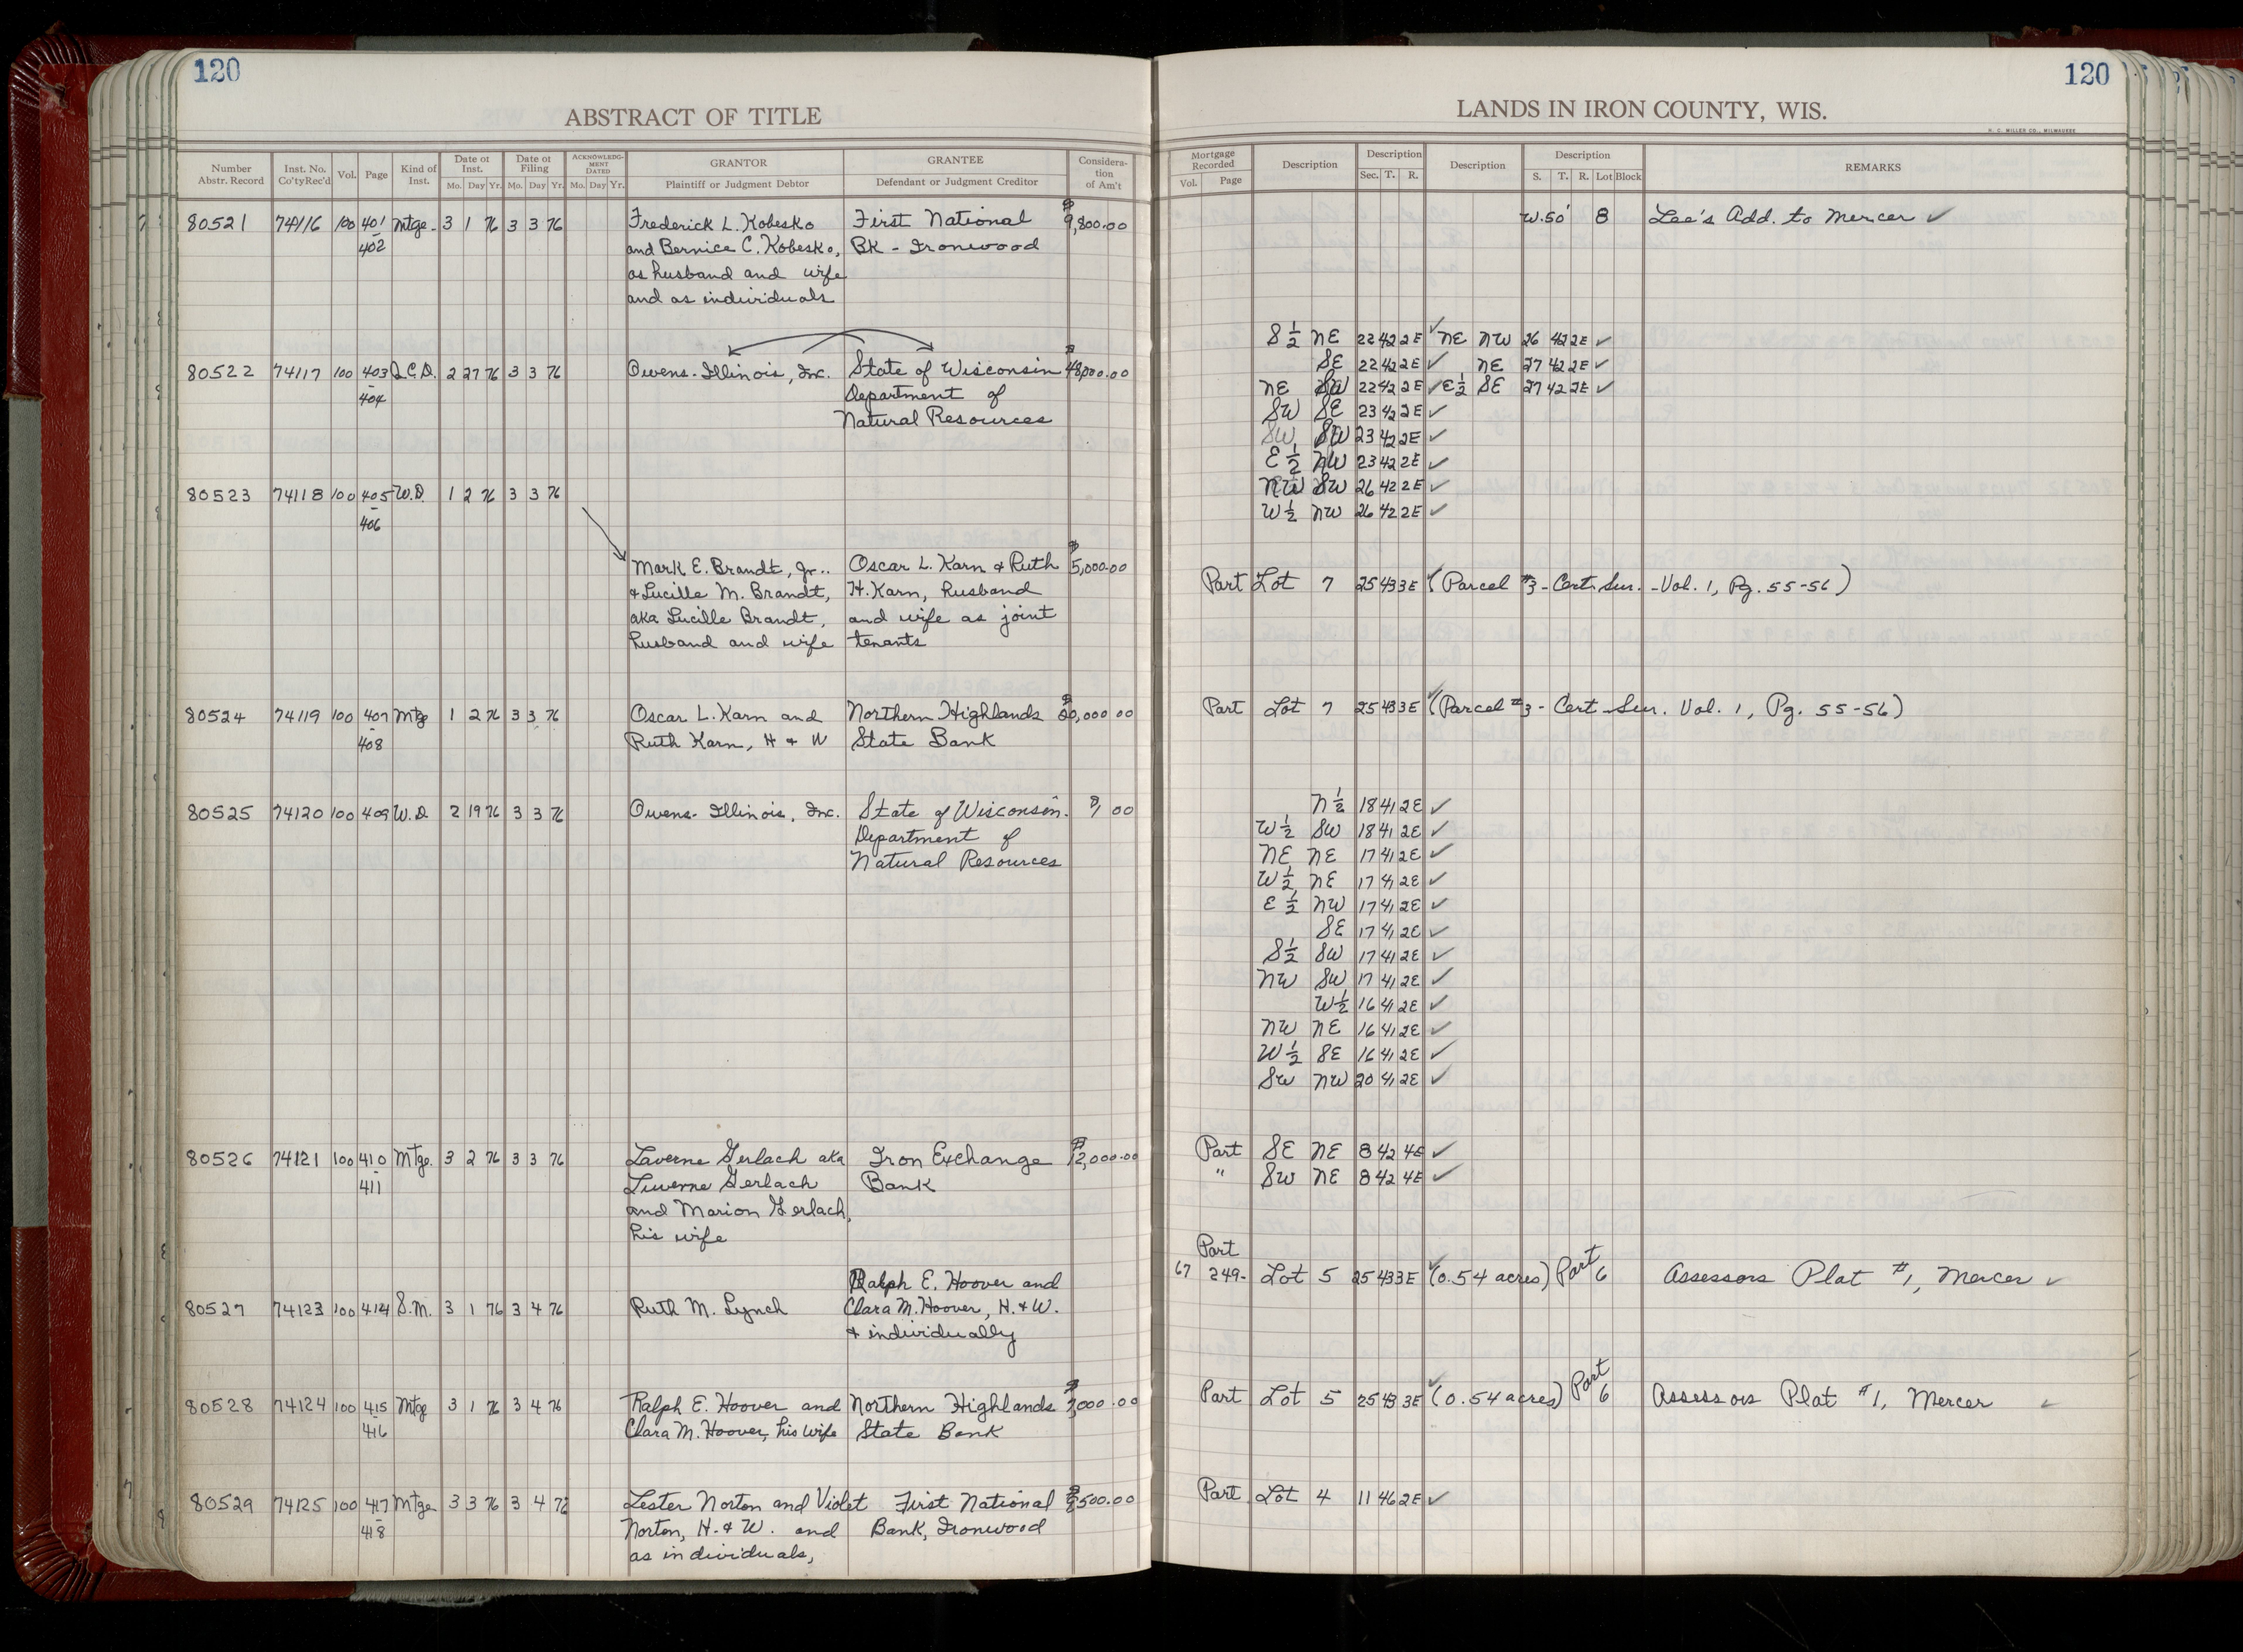 120
ABSTRACT OF TITLE
Number Abstr. Record
Inst. No. Co'tyRec'd
Vol.
Page
Kind of Inst.
Date of Inst.
Mo. Day Yr.
Date of Filing
Mo. Day Yr.
ACKNOWLEDG-MENT DATED
Mo. Day Yr.
GRANTOR
Plaintiff or Judgment Debtor
GRANTEE
Defendant or Judgment Creditor
Considera-tion of Am't
80521 74116 100 401 Mtge. 3 1 76 3 3 76 Frederick L. Kobesko First National $9,800.00
- 402 and Bernice C. Kobesko, BK - Ironwood
as husband and wife
and as individuals
80522 74117 100 403 Q.C.D. 2 27 76 3 3 76 Owens-Illinois, Inc. State of Wisconsin
- 404 Department of
Natural Resources
80523 74118 100 405 W.D. 1 2 76 3 3 76
- 406
Mark E. Brandt, Jr.. Oscar L. Karn & Ruth $5,000.00
& Lucille M. Brandt, H. Karn, husband
aka Lucille Brandt, and wife as joint
husband and wife tenants
80524 74119 100 407 Mtge 1 2 76 3 3 76 Oscar L. Karn and Northern Highlands
- 408 Ruth Karn, H & W State Bank
80525 74120 100 409 W.D. 2 19 76 3 3 76 Owens-Illinois, Inc. State of Wisconsin. $1 00
Department of
Natural Resources
80526 74121 100 410 Mtge. 3 2 76 3 3 76 Laverne Gerlach aka Iron Exchange $12,000.00
- 411 Luverne Gerlach Bank
and Marion Gerlach,
his wife
Ralph E. Hoover and
80527 74123 100 414 S.M. 3 1 76 3 4 76 Ruth M. Lynch Clara M. Hoover, H. & W.
& individually
80528 74124 100 415 Mtg 3 1 76 3 4 76 Ralph E. Hoover and Northern Highlands
- 416 Clara M. Hoover, his wife State Bank
80529 74125 100 417 Mtge 3 3 76 3 4 76 Lester Norton and Violet First National
- 418 Norton, H. & W. and Bank, Ironwood
as individuals,
120
LANDS IN IRON COUNTY, WIS.
H. C. MILLER CO., MILWAUKEE
Mortgage Recorded
Vol. Page
Description
Description
Sec. T. R.
Description
Description
S. T. R. Lot Block
REMARKS
W. 50' 8 Lee's Add. to Mercer ✓
S ½ NE 22 42 2E ✓ NE NW 26 42 2E ✓
SE 22 42 2E ✓ NE 27 42 2E ✓
NE SW 22 42 2E ✓ E ½ SE 27 42 2E ✓
SW SE 23 42 2E ✓
SW SW 23 42 2E ✓
E ½ NW 23 42 2E ✓
NW SW 26 42 2E ✓
W ½ NW 26 42 2E ✓
Part Lot 7 25 43 3E ✓ (Parcel #3 - Cert. Sur. - Vol. 1, Pg. 55-56)
Part Lot 7 25 43 3E ✓ (Parcel #3 - Cert. Sur. Vol. 1, Pg. 55-56)
N ½ 18 41 2E ✓
W ½ SW 18 41 2E ✓
NE NE 17 41 2E ✓
W ½ NE 17 41 2E ✓
E ½ NW 17 41 2E ✓
SE 17 41 2E ✓
S ½ SW 17 41 2E ✓
NW SW 17 41 2E ✓
W ½ 16 41 2E ✓
NW NE 16 41 2E ✓
W ½ SE 16 41 2E ✓
SW NW 20 41 2E ✓
Part SE NE 8 42 4E ✓
" SW NE 8 42 4E ✓
Part
67 249- Lot 5 25 43 3E ✓ (0.54 acres) Part 6 Assessors Plat #1, Mercer ✓
Part Lot 5 25 43 3E ✓ (0.54 acres) Part 6 Assessors Plat #1, Mercer ✓
Part Lot 4 11 46 2E ✓